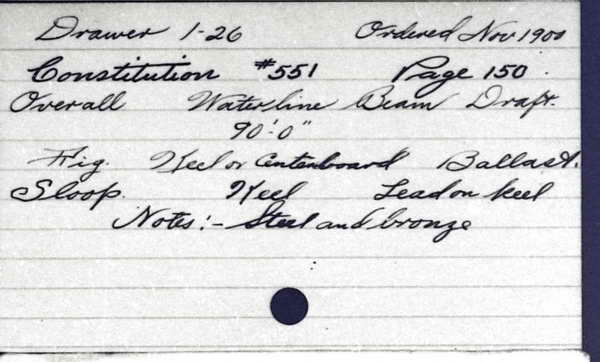 Drawer 1-26 Ordered Nov 1900
Constitution #551 Page 150
Overall Waterline Beam Draft.
90'-0"
Rig. Keel or Centerboard Ballast.
Sloop. Keel Lead on keel
Notes:- Steel and bronze